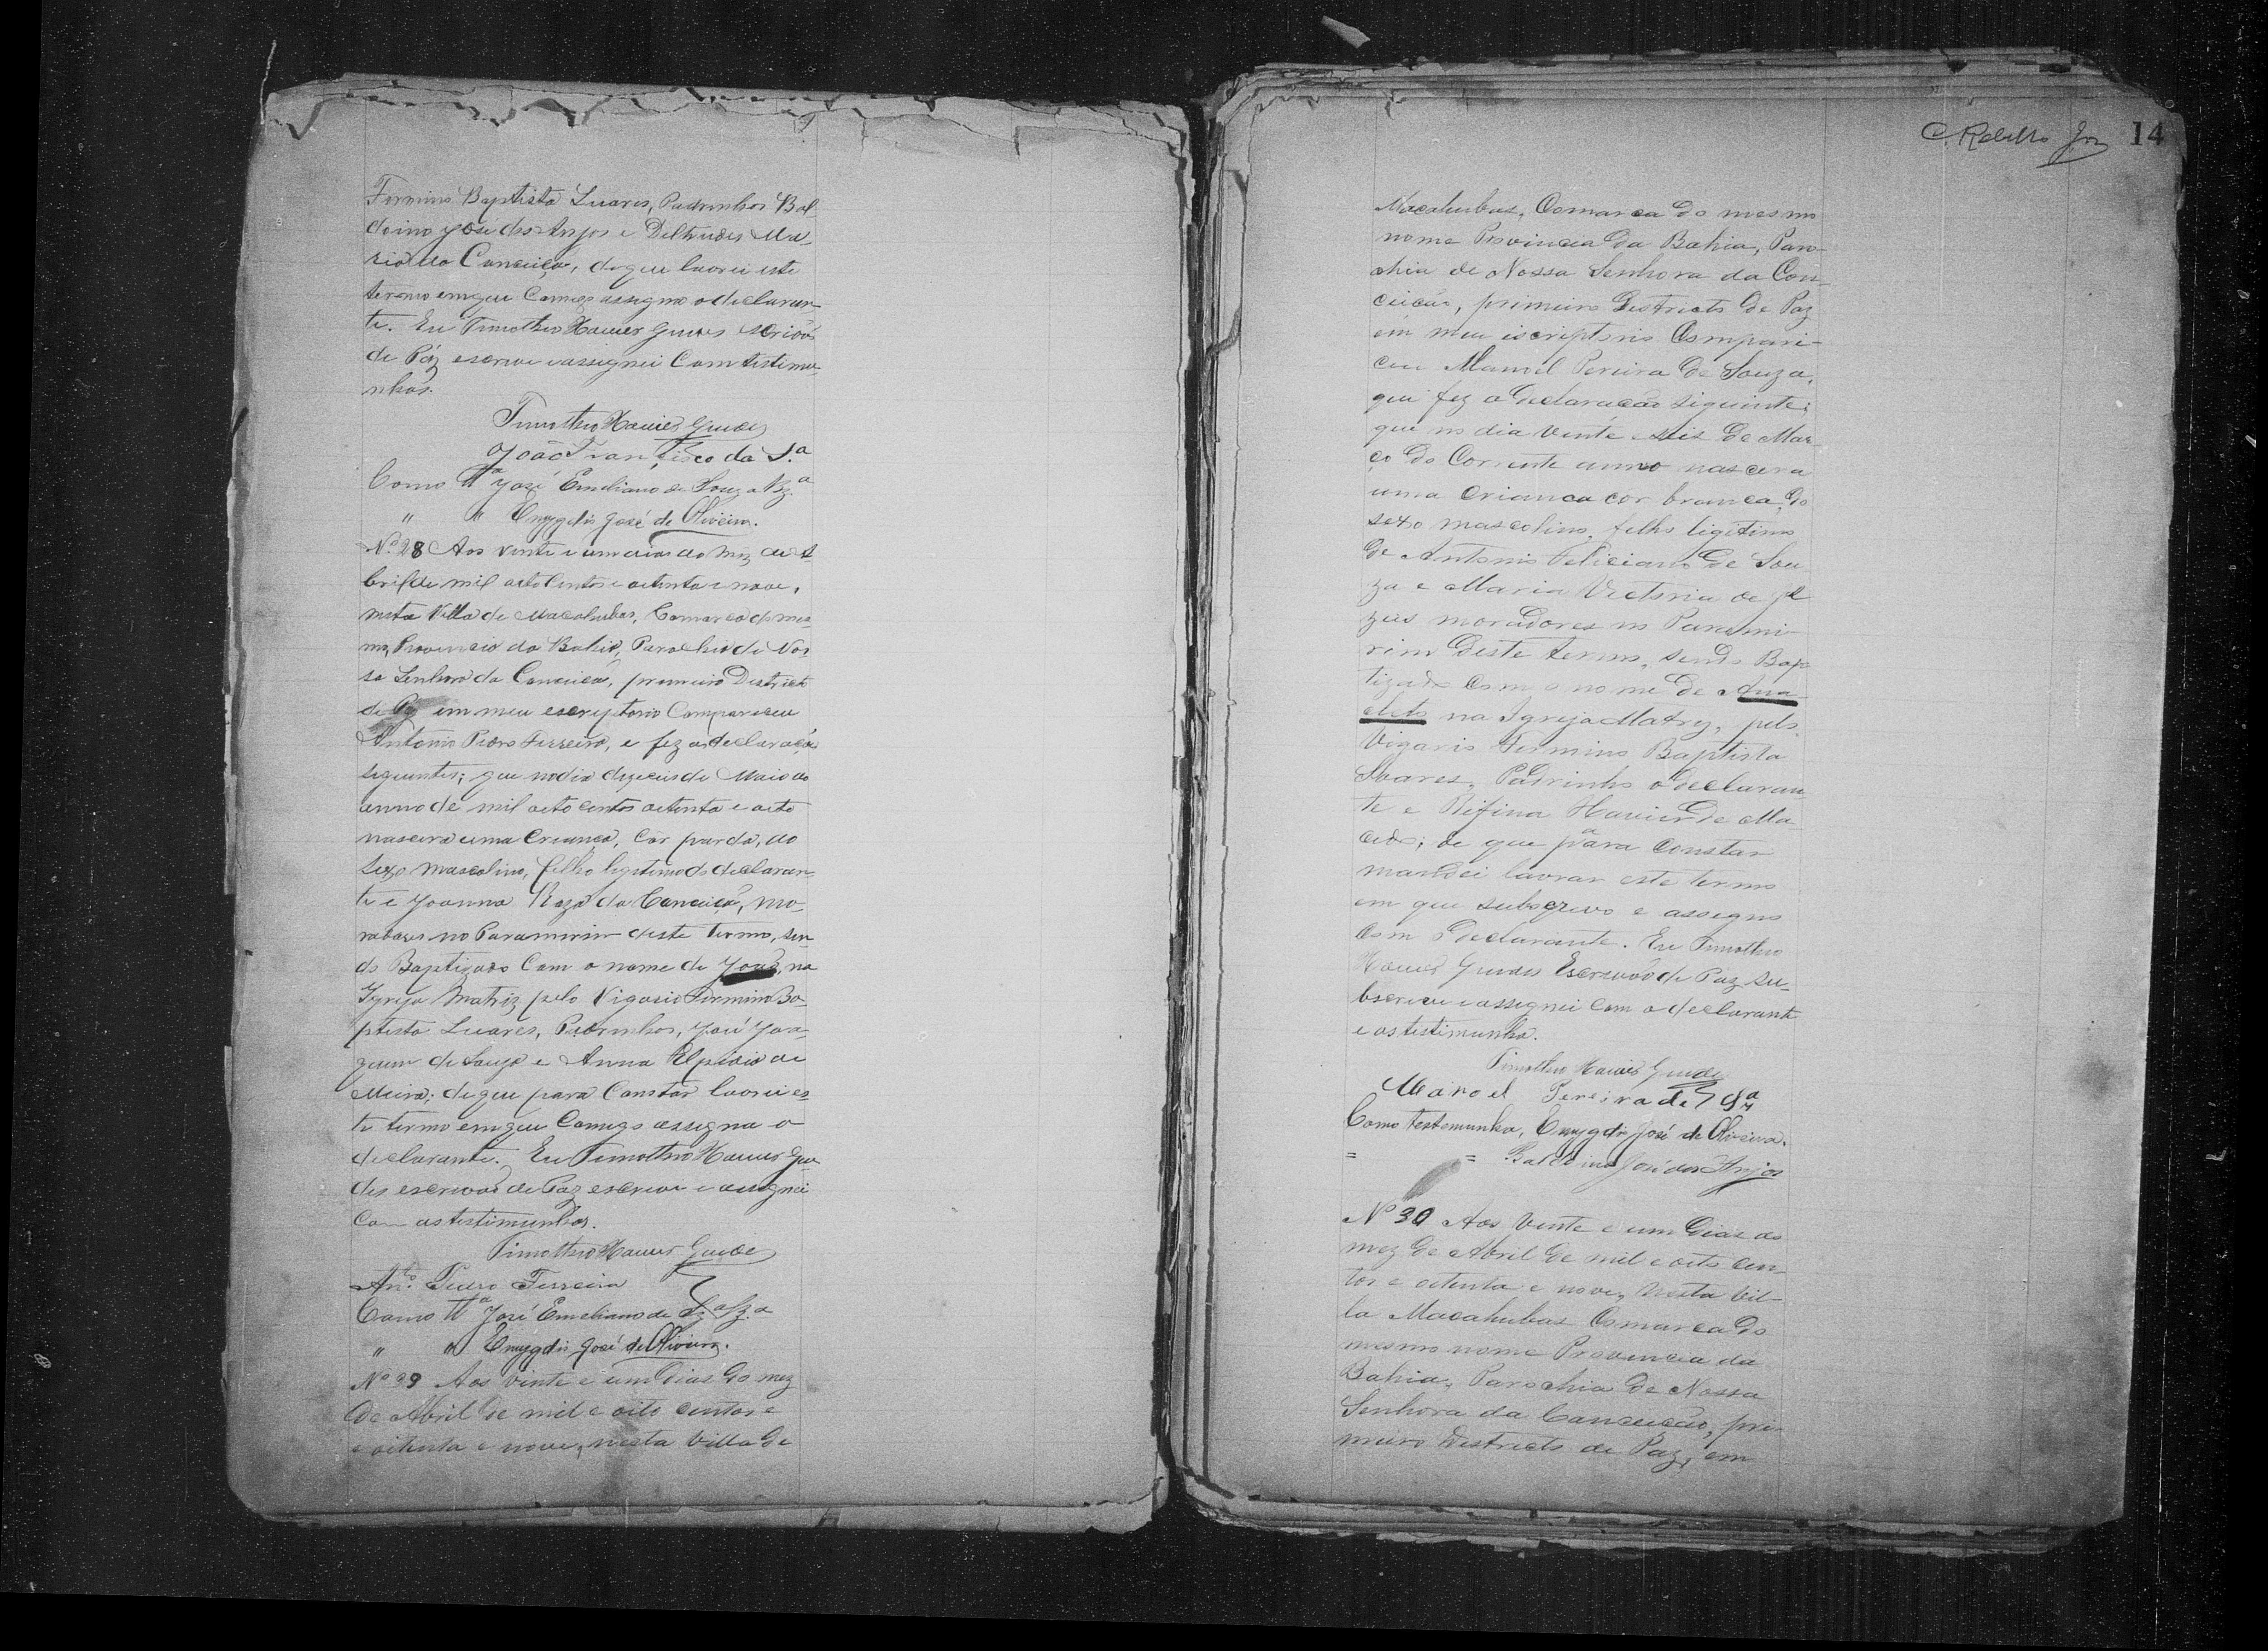 Firmino Baptista Suares, Padrinhos Bal-
doino José dos Anjos e Deltrudes Ma-
ria da Conceição, de que lavrei este
termo em que Comigo assigna o declaran-
te. Eu Timotheo Xavier Guedes escrivão
de Páz escrevi e assignei Com testimu-
nhas.
Timotheo Xavier Guedes
João Francisco da S.ª
Como Tª José Emeliano de Souza
" " Emygdio José de Oliveira.
Nº 28 Aos vinte e um dias do mez de A-
bril de mil oito Centos e oitenta e nove,
nesta Villa de Macahubas, Comarca do mes-
mo, Provincia da Bahia, Parochia de Nos-
sa Senhora da Conceição, primeiro Districto
de Paz em meu escriptorio Compareceu
Antonio Pedro Ferreira, e fez as declarações
seguintes; que no dia dezeseis de Maio do
anno de mil oito centos oitenta e oito
nascera uma Criança, Côr parda, do
sexo masculino, filho legitimo do declaran-
te e Joanna Roza da Conceição, mo-
radores no Paramirim deste termo, sen-
do Baptizado Com o nome de João, na
Igreja Matriz pelo Vigario Firmino Ba-
ptista Suares, Padrinhos, José Joa-
quim de Souza e Anna Elpidia de
Meira; de que para Constar lavrei es-
te termo em que Comigo assigna o
declarante. Eu Timotheo Xavier Gue-
des escrivão de Paz escrevi e assignei
Com as testimunhas.
Timotheo Xavier Guedes
Anto. Pedro Ferreira
Como Tª José Emeliano de
" " Emygdio José de Oliveira.
Nº 29 Aos vinte e um dias do mez
de Abril de mil e oito centos e
e oitenta e nove, nesta Villa de
C. Rebello Jor 14
Macahubas, Comarca do mesmo
nome Provincia da Bahia, Paro-
chia de Nossa Senhora da Con-
ceição, primeiro Districto de Paz
em meu iscriptorio Compari-
ceu Manoel Pereira de Souza,
que fez a declaração siguinte;
que no dia vinte e seis de Mar-
ço do Corrente anno nascera
uma Criança cor branca, do
sexo mascolino, filho ligitimo
de Antonio Feliciano de Sou-
za e Maria Victoria de Je-
zus moradores no Parami-
rim deste termo, sendo Bap-
tizado com o nome de Ana-
cleto na Igreja Matriz, pelo
Vigario Firmino Baptista
Soares, Padrinho o declaran-
te e Rifina Xavier de Ma-
cedo; de que para Constar
mandei lavrar este termo
em que subscrevo e assigno
Com o declarante. Eu Timotheo
Xavier Guedes Escrivão de Paz su-
bscrevi e assignei Com o declarante
e as testimunha.
Timotheo Xavier Guedes
Manoel Pereira de Sza
Como testemunha, Emygdio José de Oliveira.
= = Baldoino José dos Anjos
Nº 30 Aos Vinte e um dias do
mez de Abril de mil e oito cen-
tos e oitenta e nove, nesta Vil-
la Macahubas Comarca do
mesmo nome Provincia da
Bahia, Parochia de Nossa
Senhora da Conceição, pri-
meiro Districto de Paz, em